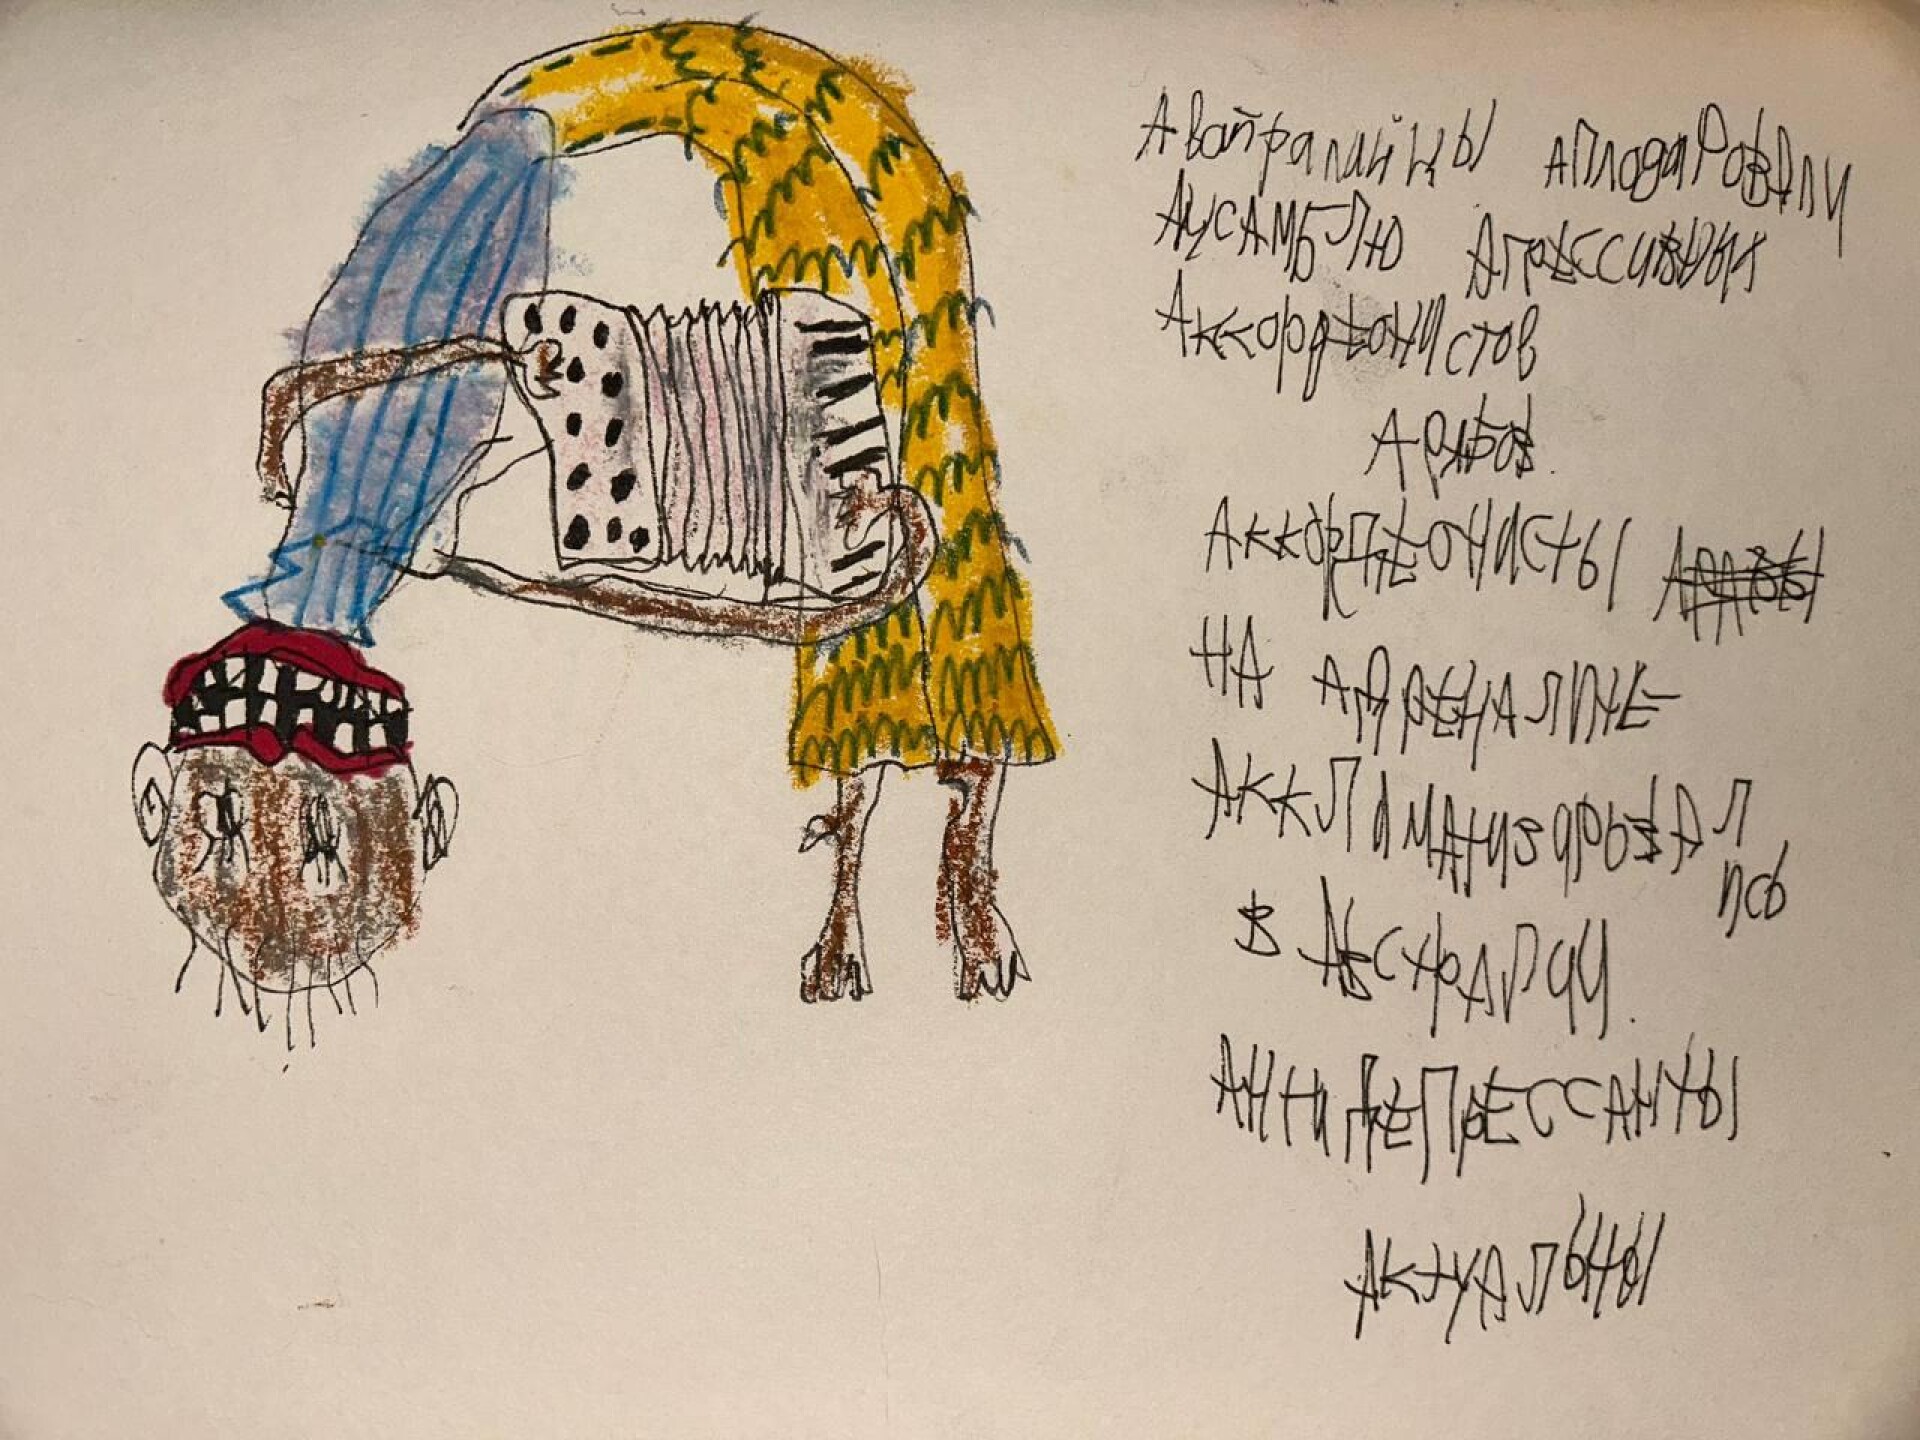 Авайралийцы аплодаровали
Ансамблю Агрессивных
Аккордеонистов
Арабов.
Аккордеонисты
на адреналине
Акклиматизировал
ись
в Австралии.
Антидепрессанты
Актуальны